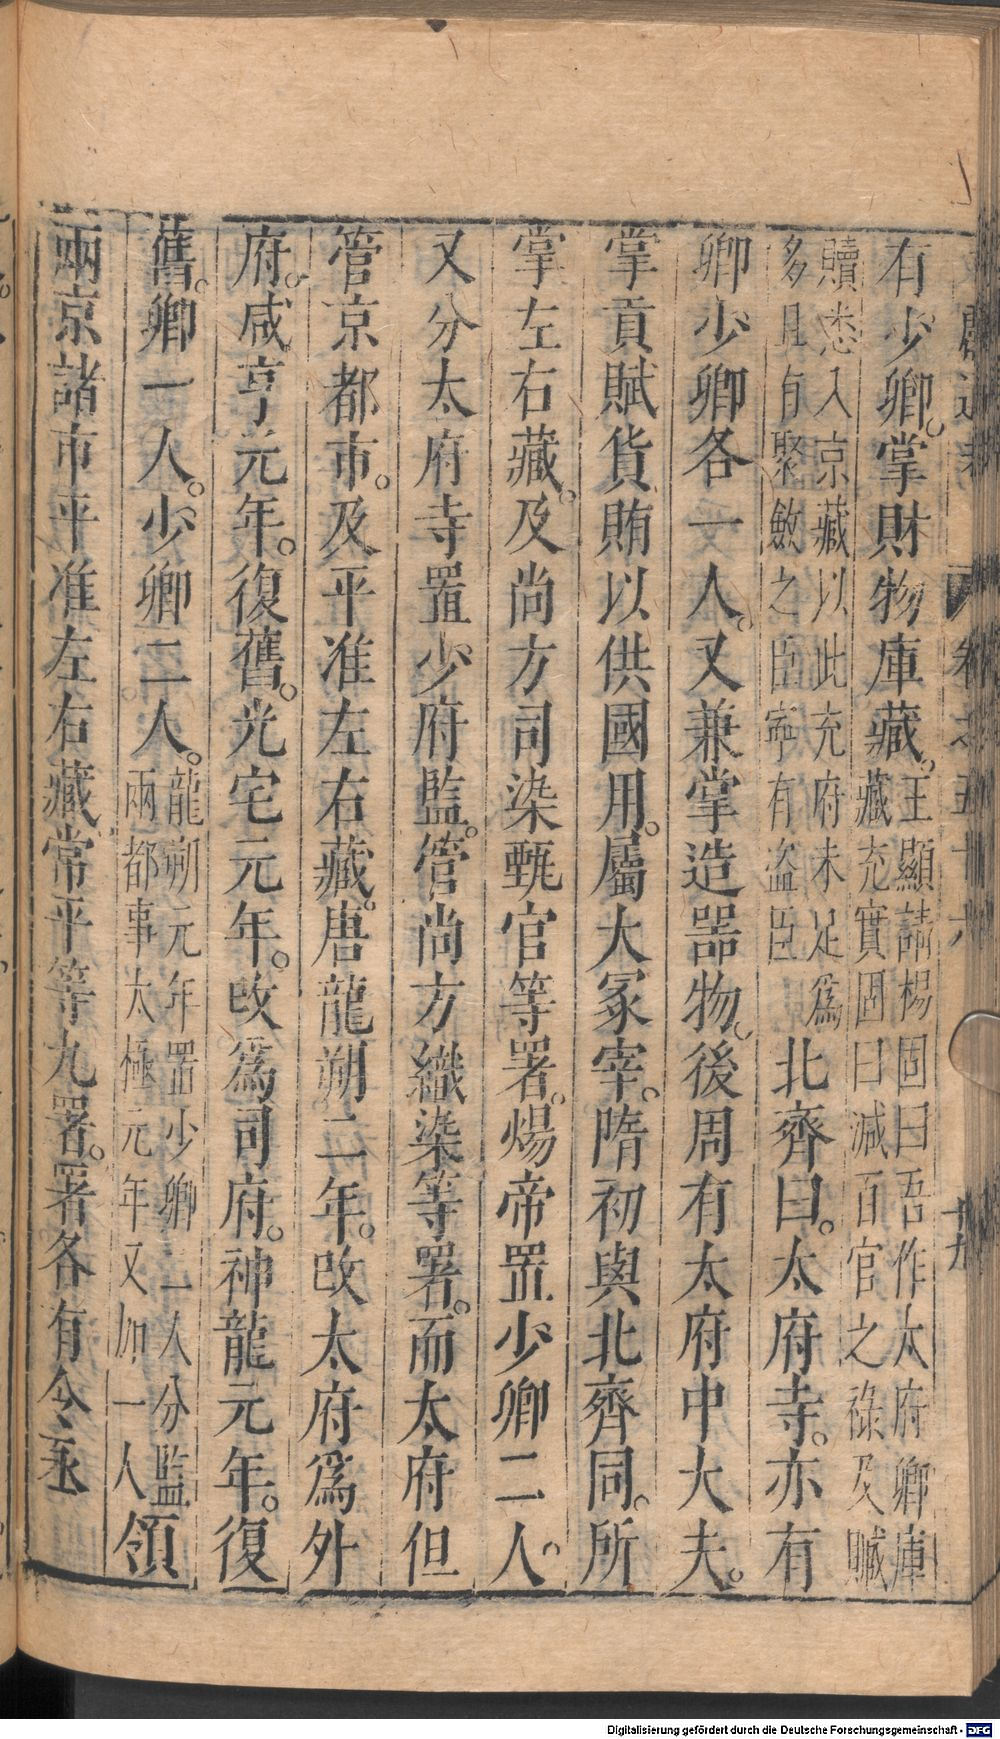 獻通考 卷之五十六 十九
有少卿。掌財物庫藏。王顯請楊固曰吾作太府卿庫
藏充實固曰減百官之祿及贓
贖悉入京藏以此充府未足爲
多且有聚斂之臣寧有盗臣
北齊曰。太府寺。亦有
卿少卿各一人。又兼掌造噐物。後周有太府中大夫。
掌貢賦貨賄以供國用。屬大冢宰。隋初與北齊同。所
掌左右藏。及尚方司染甄官等署。煬帝置少卿二人。
又分太府寺置少府監。管尚方織染等署。而太府但
管京都市。及平准左右藏。唐龍朔二年。改太府爲外
府。咸亨元年。復舊。光宅元年。改爲司府。神龍元年。復
舊。卿一人。少卿二人。龍朔元年置少卿二人分監
兩都事太極元年又加一人
領
兩京諸市平准左右藏常平等九署。署各有令丞
Digitalisierung gefördert durch die Deutsche Forschungsgemeinschaft - DFG